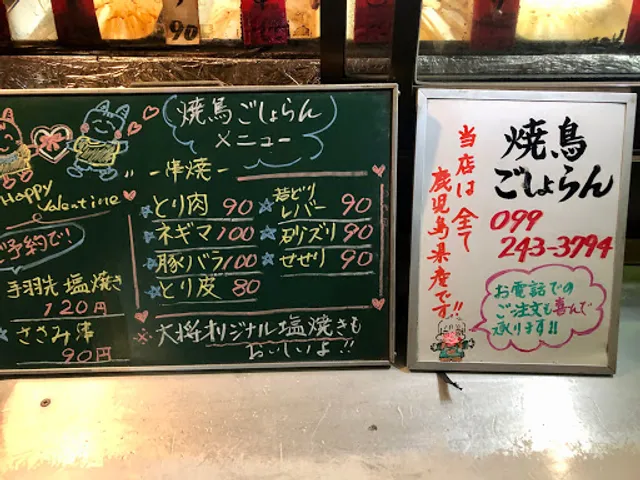 焼鳥ごしょらん
メニュー
Happy
Valentine
ご予約で!
手羽先塩焼き
120円
ささみ串
90円
-串焼-
とり肉 90
ネギマ 100
豚バラ 100
とり皮 80
若どり
レバー 90
砂ズリ 90
せせり 90
※大将オリジナル塩焼きも
おいしいよ!!
焼鳥
ごしょらん
099
243-3794
当店は全て
鹿児島県産です!!
お電話での
ご注文も喜んで
承ります!!
90